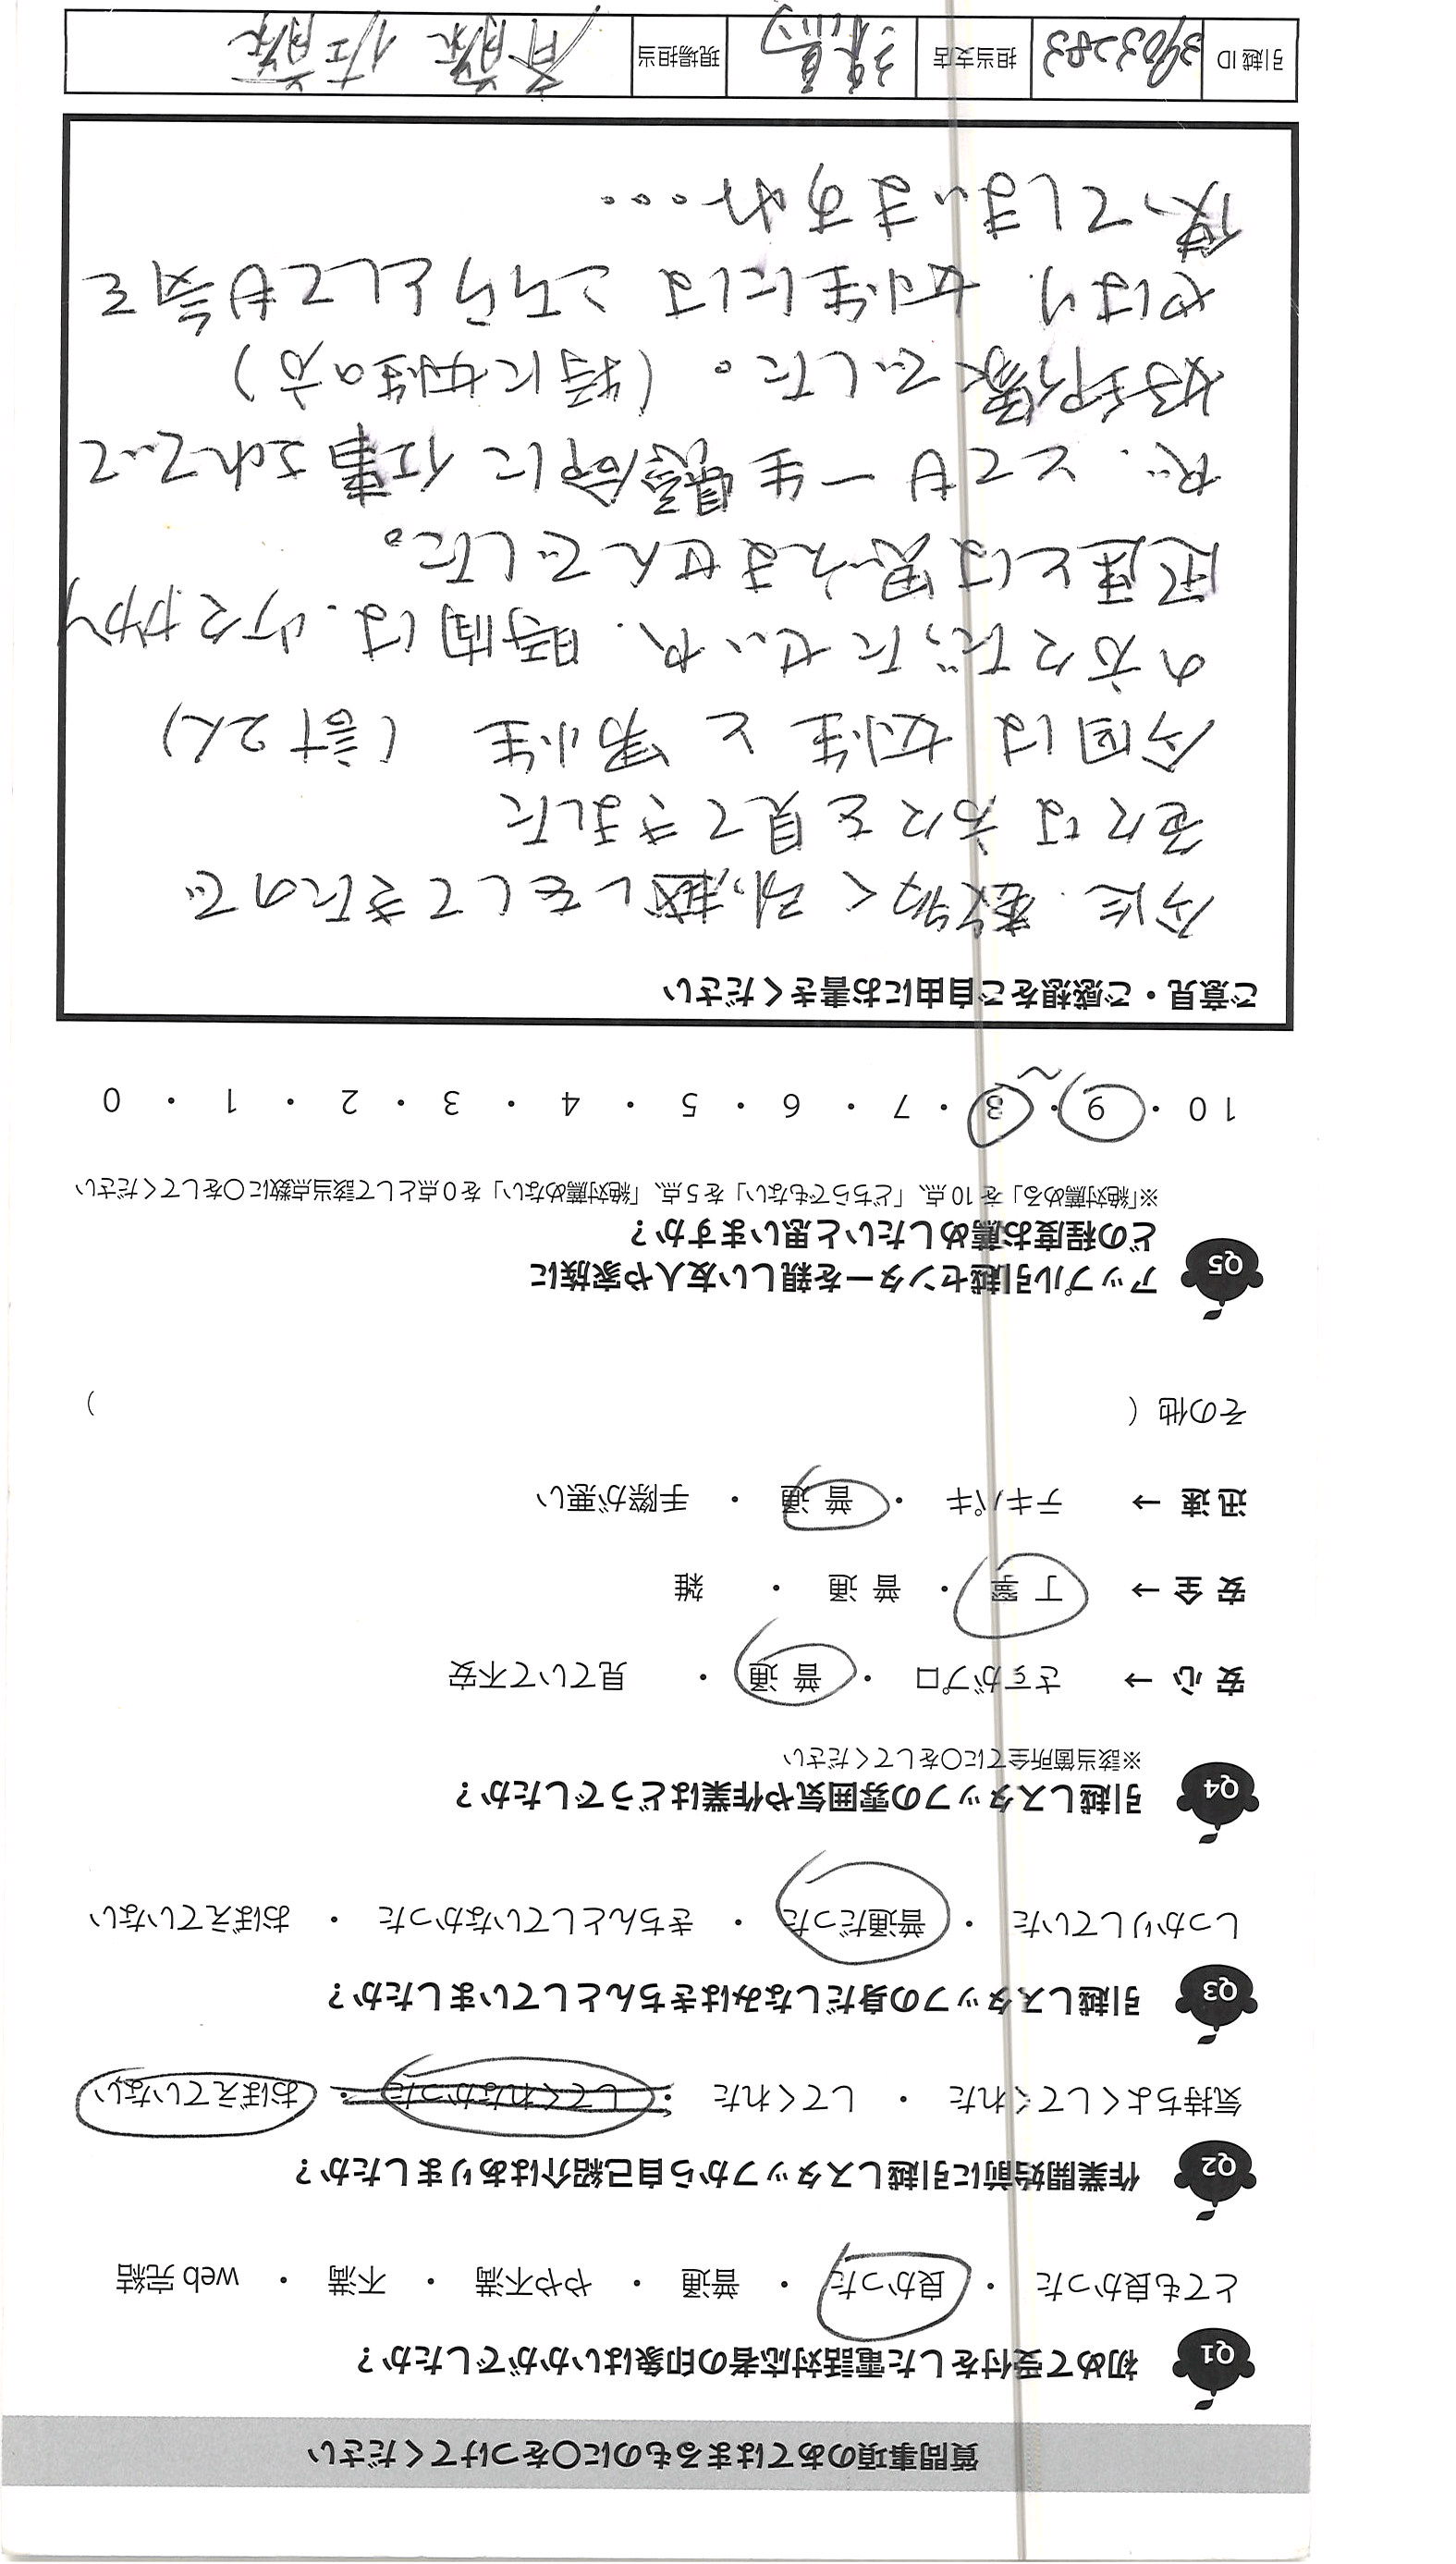 質問事項のあてはまるものに〇をつけてください
Q1 初めて受付をした電話対応者の印象はいかがでしたか？
とても良かった ・ 良かった ・ 普通 ・ やや不満 ・ 不満 ・ web 完結
Q2 作業開始前に引越しスタッフから自己紹介はありましたか？
気持ちよくしてくれた ・ してくれた ・ してくれなかった ・ おぼえていない
Q3 引越しスタッフの身だしなみはきちんとしていましたか？
しっかりしていた ・ 普通だった ・ きちんとしていなかった ・ おぼえていない
Q4 引越しスタッフの雰囲気や作業はどうでしたか？
※該当箇所全てに〇をしてください
安 心 → さすがプロ ・ 普 通 ・ 見ていて不安
安 全 → 丁 寧 ・ 普 通 ・ 雑
迅 速 → テキパキ ・ 普 通 ・ 手際が悪い
その他（ ）
Q5 アップル引越センターを親しい友人や家族に
どの程度お薦めしたいと思いますか？
※「絶対薦める」を 10 点、「どちらでもない」を 5 点、「絶対薦めない」を 0 点として該当点数に〇をしてください
10 ・ 9 ・ 8 ・ 7 ・ 6 ・ 5 ・ 4 ・ 3 ・ 2 ・ 1 ・ 0
ご意見・ご感想をご自由にお書きください
今迄、数多く引っ越しをしてきたので
色々な方々を見てきました
今回は 女性 と 男性 (計2人)
の方々だったせいか、時間は、少々かかり
迅速とは思えませんでした。
が、とても一生懸命に仕事されていて
好印象でした。(特に女性の方)
やはり、女性には こちらとしても気を
使ってしまいますね…。
引越 ID 3903283 担当支店 練馬 現場担当 斉藤 佐藤